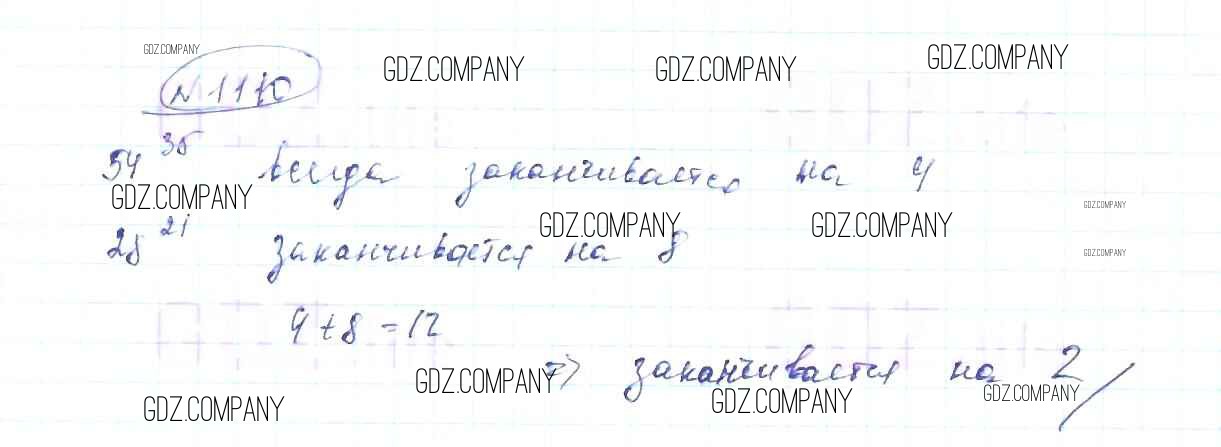 GDZ.COMPANY
GDZ.COMPANY GDZ.COMPANY GDZ.COMPANY
№ 1110
54³⁵ всегда заканчивается на 4
GDZ.COMPANY
GDZ.COMPANY
GDZ.COMPANY GDZ.COMPANY
28²¹ заканчивается на 8
GDZ.COMPANY
4 + 8 = 12
=> заканчивается на 2
GDZ.COMPANY GDZ.COMPANY GDZ.COMPANY
GDZ.COMPANY